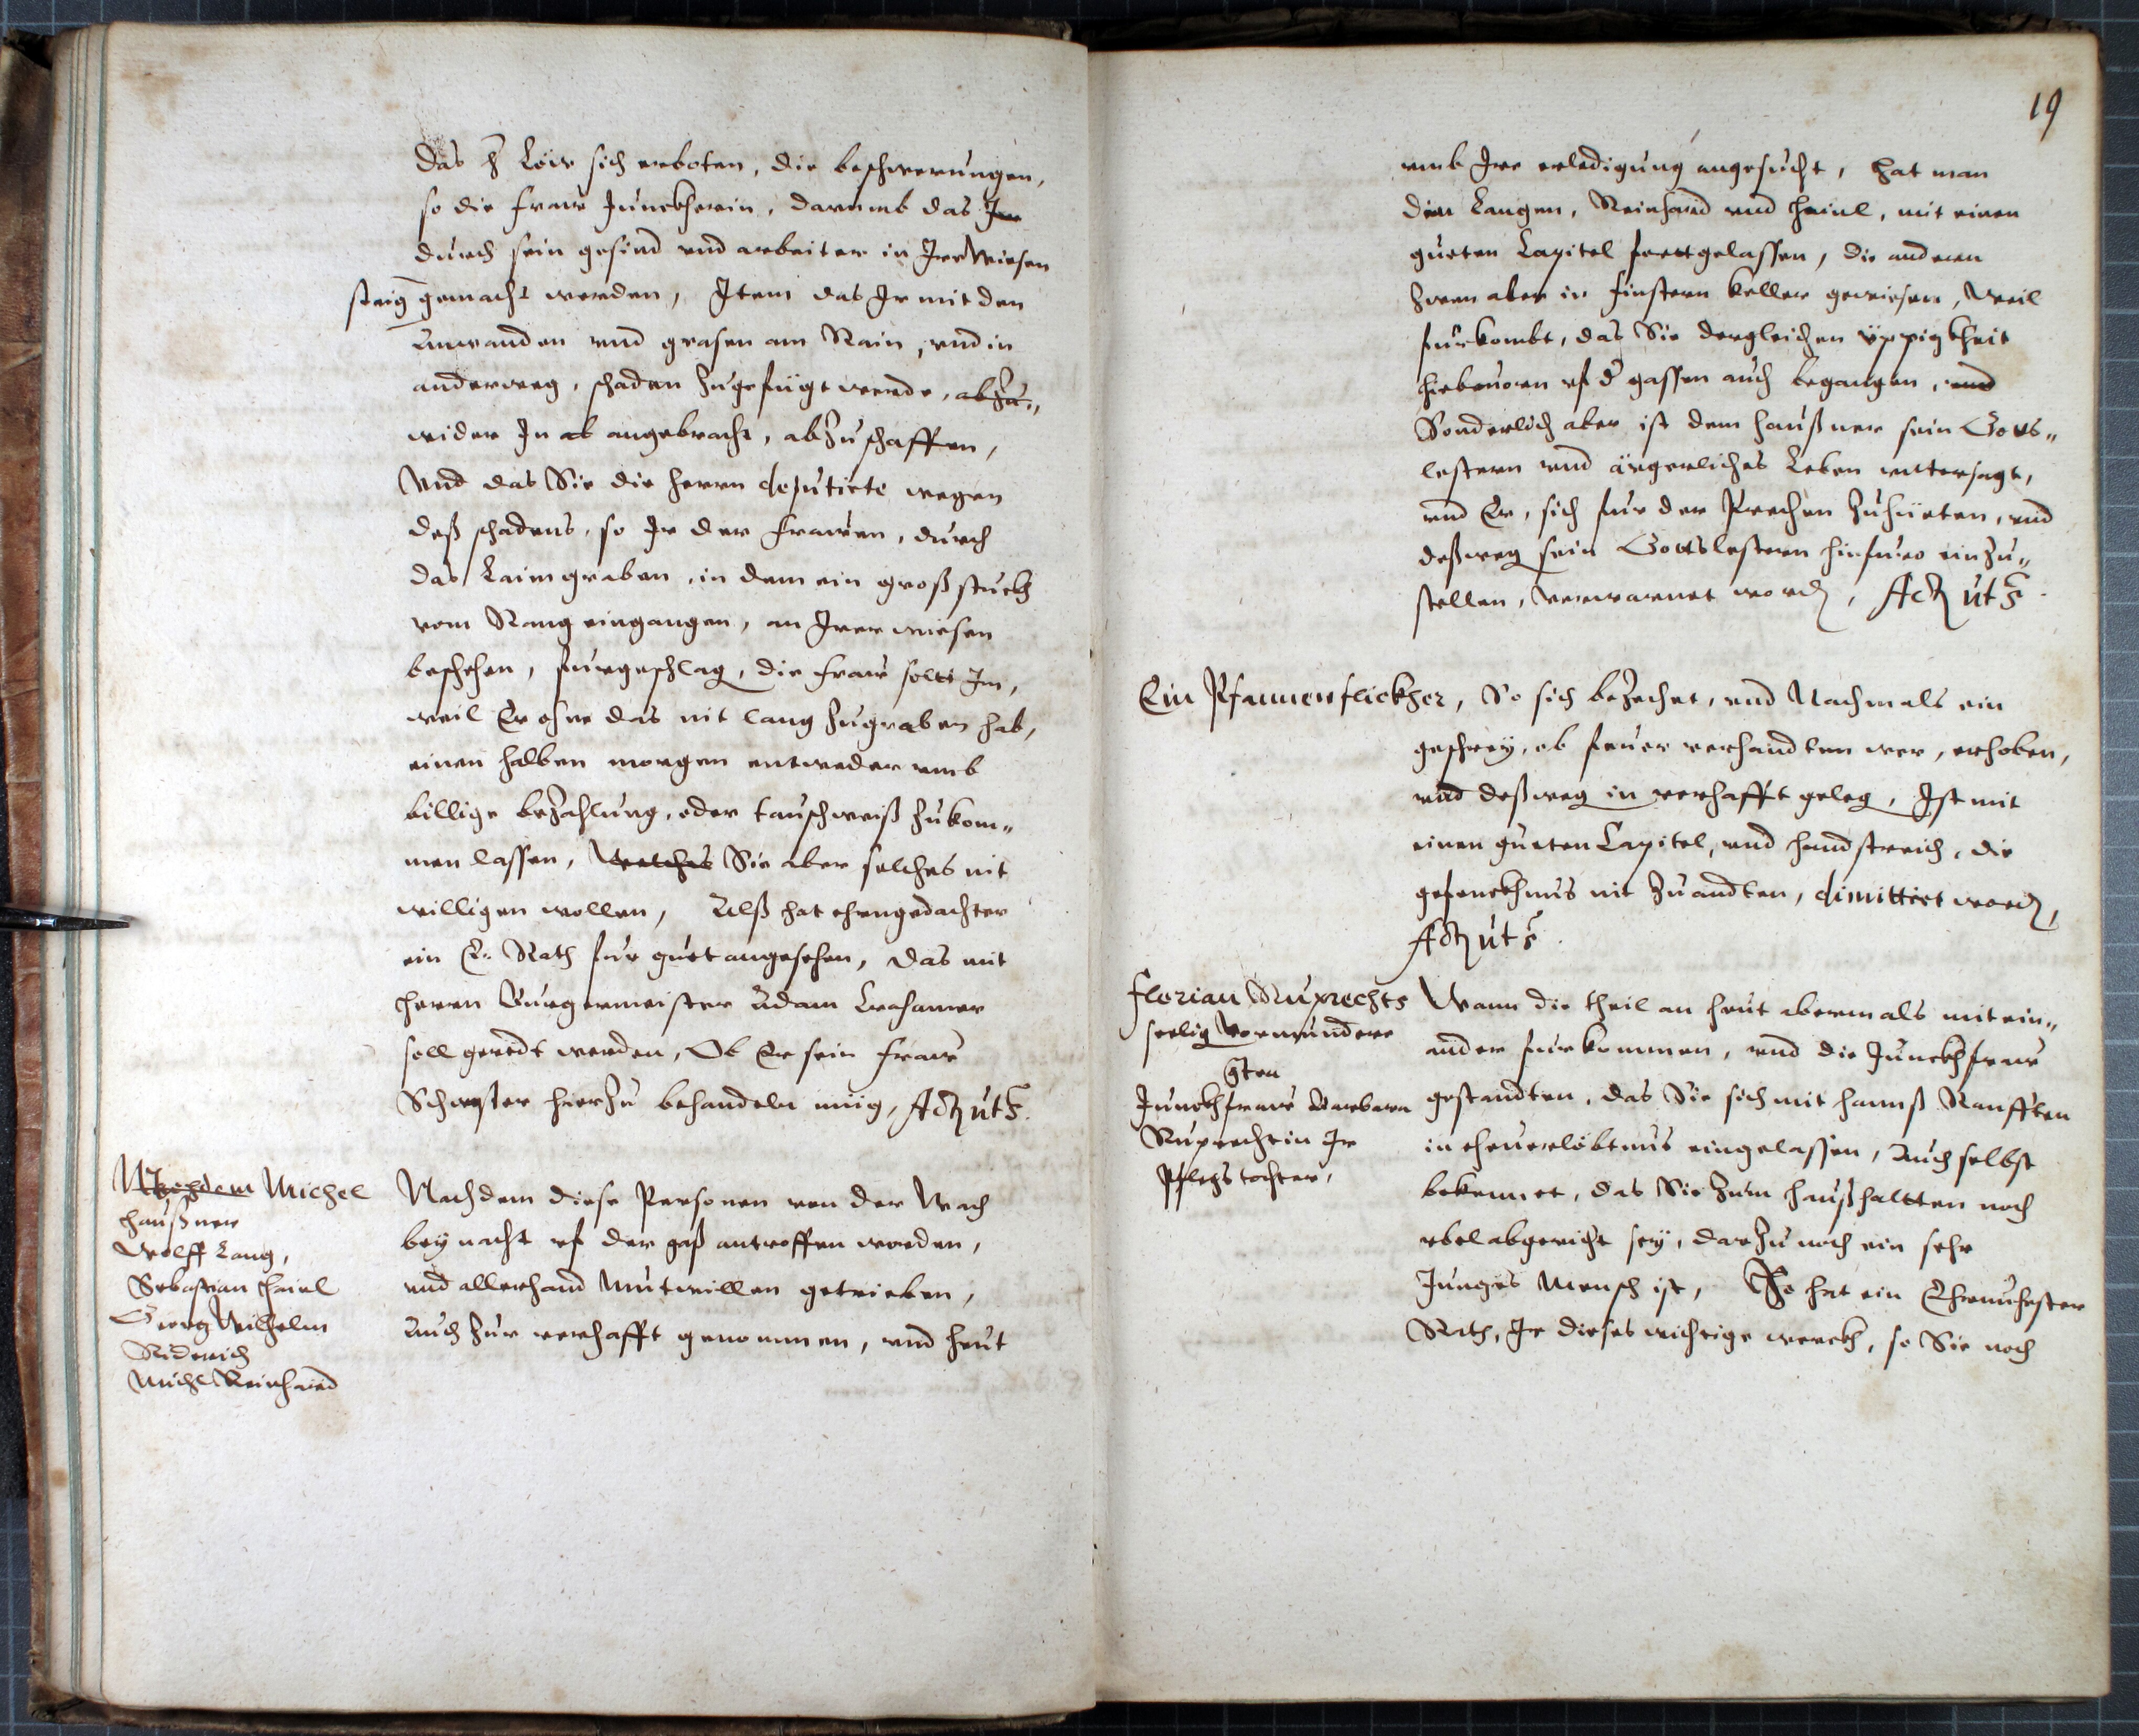 das H Löw sich erboten, die beschwerungen,
so die fraw Junckherin, darumb das Ir
durch sein gesind vnd arbeiter in Irr wiesen
steig gemacht werden, Item das Ir mit den
Anwanden vnd grasen am Rain, vnd in
anderweg, schaden zugefügt werde, abzu„
wider In ab angebracht, abzuschaffen,
Vnd das Sie die herrn deputirte wegen
deß schadens, so Ir der frawen, durch
das Laimgraben, in dem ein groß stuckh
vom Rang eingangen, an Irer wiesen
beschehen, furgeschlag, die fraw solte Im,
weil Er ohne das nit lang zugraben hab,
einen halben morgen entweder vmb
billige bezahlung, oder tauschweiß zukom„
men lassen, welches Sie aber solches nit
willigen wollen, Alß hat ehrngedachter
ein E. Rath fur guet angesehen, das mit
herrn Burgermeister Adam
soll geredt werden, Ob Er sein fraw
Schwester hierzu behandeln müg, Act ut s.
Nachdem Michel
Haußner
Wolff Lang,
Sebastian Hainl
Georg Wilhelm
Michl Reinhard
Nachdem diese Personen von der Wach
bey nacht vf der gaß antroffen worden,
vnd allerhand mutwillen getrieben,
Auch zur verhafft genommen, vnd heut
19
vmb Ire erledigung angesucht, hat man
den Langen, Reinhard vnd Hainl, mit einen
gueten Capitel fortgelassen, die andern
zwen aber in finstern keller gewiesen, weil
furkombt, das Sie dergleichen üppigkheit
hiebeuorn vf d gassen auch begangen, vnd
Sonderlich aber ist dem Haußner sein Gotts„
lestern vnd ärgerliches Leben vntersagt,
vnd Er, sich fur der Frechen zuhüeten, vnd
deßweg sein Gottslestern hinfuro einzu„
stellen, verwarnet word, Act ut s.
Ein Pfannenflickher, So sich bezecht, vnd Nachmals ein
geschrey, ob feuer verhandten wer, erhoben,
vnd deßweg in verhafft geleg, Ist mit
einen gueten Capitel, vnd handstreich, die
gefenckhnus nit zu andten, dimittirt word,
Act ut s.
Florian Ruprechts
seelig Vormundere
gten
Junckhfraw Barbara
Ruprechtin Ir
Pflegstochter,
Wann die theil an heut abermals mit ein„
ander furkommen, vnd die Junckhfraw
gestandten, das Sie sich mit hannß Raufften
in eheuerlöbtnus eingelassen, Auch selbst
bekennet, das Sie zum haußhaltten noch
vbel abgericht sey, darzu noch ein sehr
Junges Mensch ist, So hat ein Ehrnuhester
Rath, Ir dieses wichtige werckh, so Sie noch